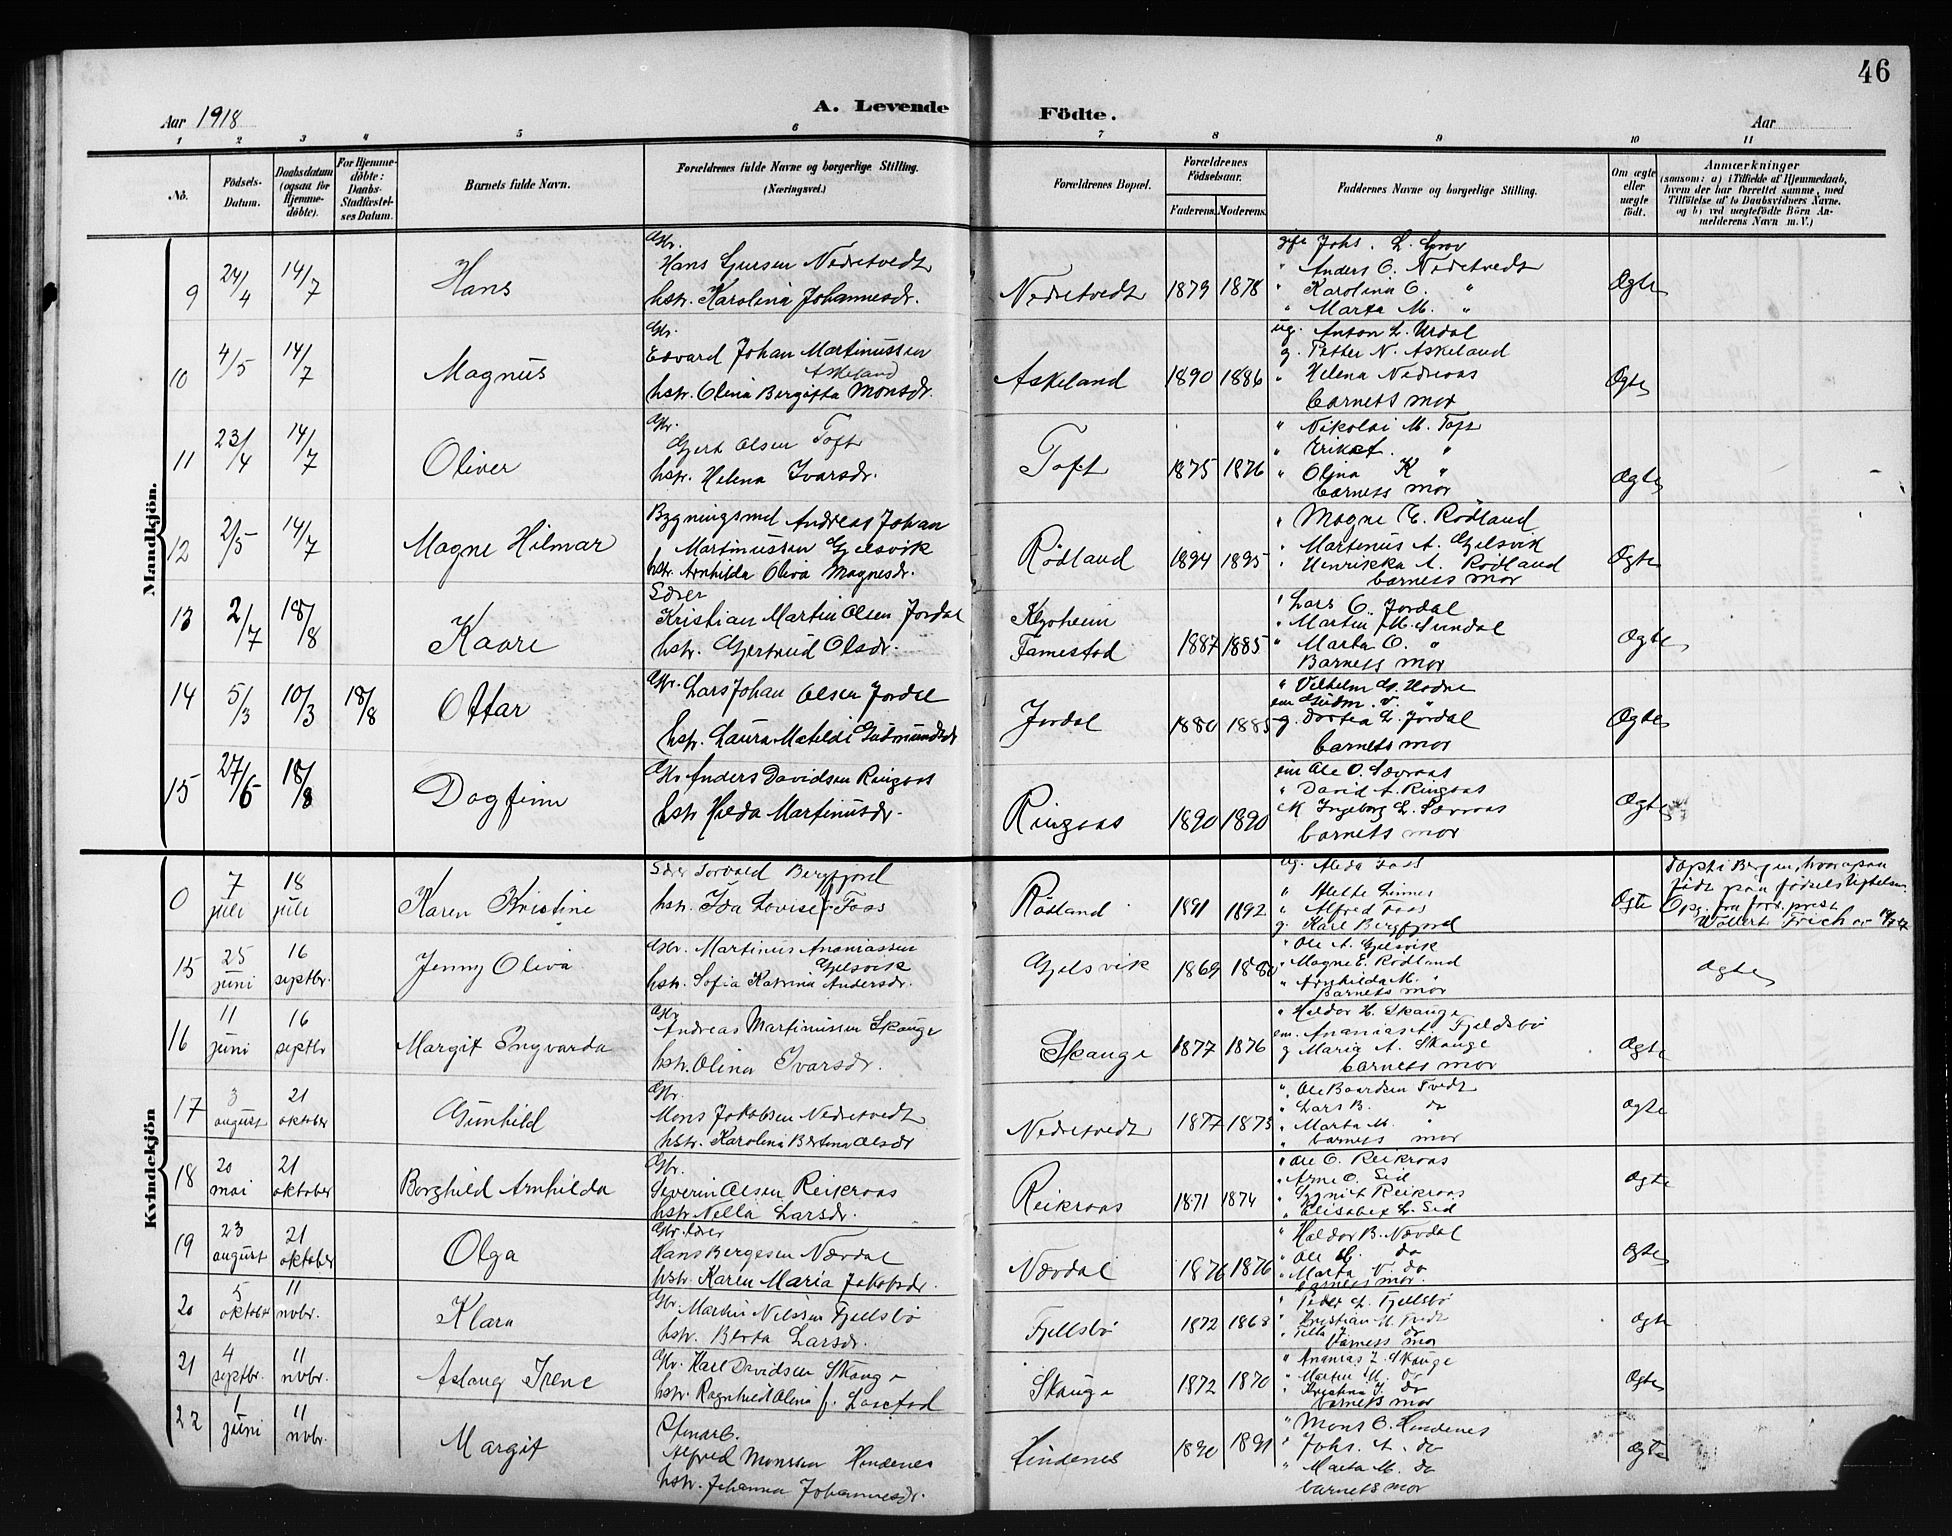 46
Aar 1918
A. Levende Födte.
Aar
1 2 3 4 5 6 7 8 9 10 11
No.
Födsels-Datum.
Daabsdatum (ogsaa for Hjemme-döbte).
For Hjemme-döbte: Daabs-Stadfæstel-ses Datum.
Barnets fulde Navn.
Forældrenes fulde Navne og borgerlige Stilling.
(Næringsvei.)
Forældrenes Bopæl.
Forældrenes Födselsaar.
Faderens. Moderens.
Faddernes Navne og borgerlige Stilling.
Om ægte eller uægte födt.
Anmærkninger
(saasom: a) i Tilfælde af Hjemmedaab,
hvem der har forrettet samme, med
Tilföielse af to Daabsvidners Navne.
og b) ved uægtefödte Börn An-
melderens Navn m.V.)
Mandkjön.
9 24/4 14/7 Hans
Gbr.
Hans Gjursen Nedretvedt
hstr. Karolina Johannesdr.
Nedretvedt 1879 1878
gift Johs. L. Grov
" Anders O. Nedretvedt
" Karolina O. "
" Marta M. "
Ægte
10 4/5 14/7 Magnus
Gbr.
Edvard Johan Martinussen
Askeland
hstr. Olina Bergitta Monsdr.
Askeland 1890 1886
ug. Anton L. Urdal
g. Petter N. Askeland
" Helena Nedreaas
barnets mor
Ægte
11 23/4 14/7 Oliver
Gbr.
Gjert Olsen Toft
hstr. Helena Ivarsdr.
Toft 1875 1876
" Nikolai M. Toft
" Erik "
" Olina K "
barnets mor
Ægte
12 2/5 14/7 Magne Hilmar
Bygningsmd Andreas Johan
Martinussen Gjelsvik
hstr. Arnhilda Oliva Magnesdr.
Rødland 1894 1895
" Magne E. Rødland
" Martinus A. Gjelsvik
" Henrikka A. Rødland
barnets mor
Ægte
13 2/7 18/8 Kaare
Lærer
Kristian Martin Olsen Jordal
hstr. Gjertrud Olsdr.
Famestad 1887 1885
" Lars O. Jordal
" Martin M. Sundal
" Marta O. "
Barnets mor
Ægte
14 5/3 10/3 18/8 Ottar
Gbr. Lars Johan Olsen Jordal
hstr. Laura Matilde Gudmundsdr
Jordal 1880 1885
" Vilhelm G. Hodne
em Gudm. V. "
g. Dortea L. Jordal
barnets mor
Ægte
15 27/6 18/8 Dagfinn
Gbr Anders Davidsen Ringaas
hstr Hilda Martinusdr.
Ringaas 1890 1890
em Ole O. Sævraas
" David A. Ringaas
K Ingeborg L. Sævraas
barnets mor
Ægte
Kvindekjön
0 7 juli 18 juli Karen Kristine
Lærer Torvald Bergfjord
hstr. Ida Lovise f. Faas
Rødland 1891 1892
ug. Alida Faas
" Mette Linnes
" Alfred Faas
g. Karl Bergfjord
Ægte
Døpt i Bergen, hvor ogsaa
født
Wollert Frich
15 25 juni 16 septbr. Jenny Oliva
Gbr. Martinus Ananiassen
Gjelsvik
hstr. Sofia Katrina Andersdr.
Gjelsvik 1869 1880
" Ole A. Gjelsvik
" Magne E. Rødland
" Arnhilda M. "
Barnets mor
ægte
16 11 juni 16 septbr Margit Ingvarda
Gbr
Andreas Martinussen Skauge
hstr. Olina Ivarsdr.
Skauge 1877 1876
" Haldor H. Skauge
em. Ananias A. Fjeldsbø
g Maria A. Skauge
barnets mor
ægte
17 3 august 21 oktober Gunhild
Gbr.
Mons Jakobsen Nedretvedt
hstr. Karolina Bertine Olsdr
Nedretvedt 1877 1873
" Ole Baardsen Tvedt
" Lars B. do
" Marta M. "
" barnets mor
ægte
18 20 mai 21 oktober Borghild Arnhilda
Gbr.
Severin Olsen Reikraas
hstr. Nella Larsdr.
Reikraas 1871 1874
" Ole O. Reikraas
" Arne O. Sid
" Sygni A Reikraas
" Elisabet L. Sid
ægte
19 23 august 21 oktober Olga
Gbr. Lærer
Hans Bergesen Nævdal
hstr. Karen Maria Jakobsdr.
Nævdal 1876 1876
" Haldor B. Nævdal
" Ole H. do
" Marta V. do
barnets mor.
ægte
20 5 oktober 11 novbr. Klara
Gbr. Martin Nilssen Fjellsbø
hstr. Berta Larsdr.
Fjellsbø 1872 1868
" Peder L. Fjellsbø
" Kristian M. Tvedt
barnets mor
ægte
21 4 septbr. 11 novbr. Aslaug Irene
Gbr. Karl Davidsen Skauge
hstr. Ragnhild Olina f. Lasetad
Skauge 1872 1870
" Ananias L. Skauge
" Martin M. do
" Kristina J. do
barnets mor
Ægte
22 1 juni 11 novbr. Margit
Stenarb.
Alfred Monssen Hindenes
hstr. Johanna Johannesdr.
Hindenes 1890 1891
" Mons O. Hindenes
" Johs. A. do
" Marta M. do
barnets mor
ægte